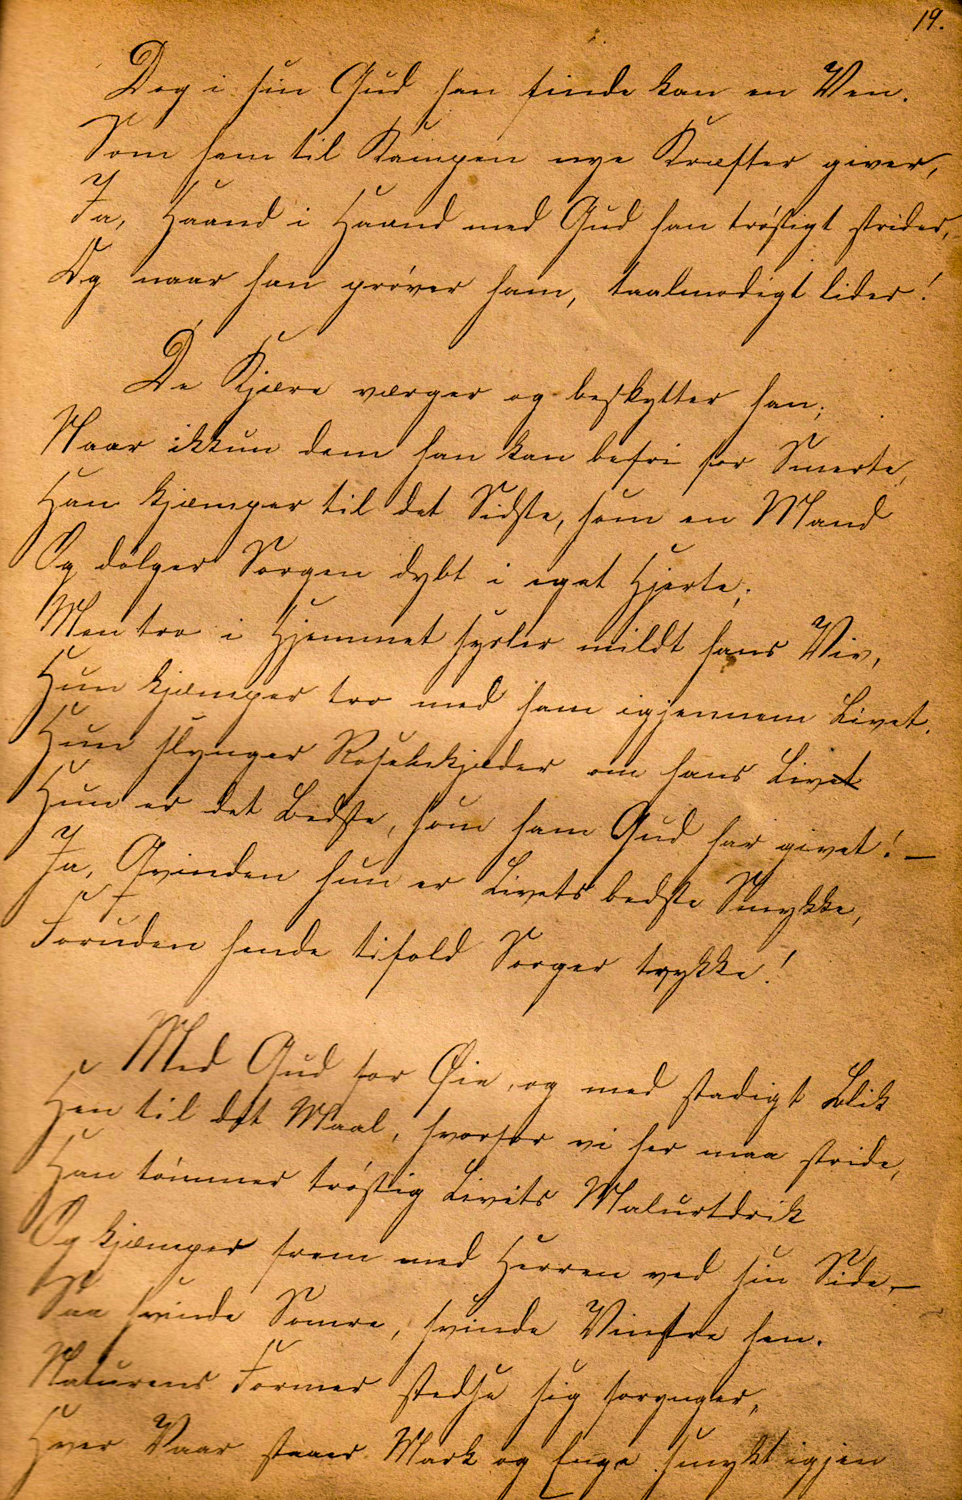 19.
Dog i sin Gud han finde kan en Ven.
Som ham til Kampen nye Kræfter giver,
Ja, Haand i Haand med Gud han trøstigt strider,
Og naar han prøver ham, taalmodigt lider!
De Kjære værger og beskytter han;
Naar ikkun dem han kan befri for Smerte,
Han kjæmper til det Sidste, som en Mand
Og dølger Sorgen dybt i eget Hjerte;
Men tro i Hjemmet sysler mildt hans Viv,
Hun kjæmper tro med ham igjennem Livet.
Hun slynger Rosenkjæder om hans Livet
Hun er det Bedste, som ham Gud har givet! —
Ja, Qvinden hun er Livets bedste Smykke,
Foruden hende tifold Sorger trykke!
Med Gud for Øie, og med stadigt Blik
Hen til det Maal, hvorfor vi her maa stride,
Han tømmer trøstig Livets Malurtdrik
Og kjæmper frem med Herren ved sin Side, —
Saa svinde Somre, svinde Vintre hen.
Naturens Former stedse sig forynger,
Hver Vaar staaer Mark og Enge smykt igjen